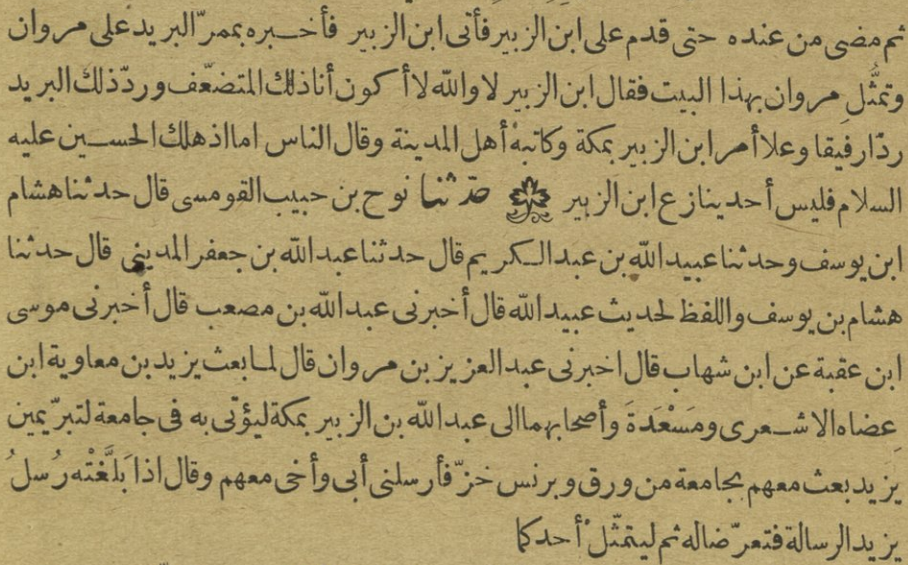 ثم مضى من عنده حتى قدم على ابن الزبير فأتى ابن الزبير فأخبره بممرّ البريد على مروان
وتمثَّل مروان بهذا البيت فقال ابن الزبير لا والله لا أكون أنا ذلك المتضعّف وردّ ذلك البريد
ردّا رفيقا وعلا أمر ابن الزبير بمكة وكاتبه أهل المدينة وقال الناس اما اذ هلك الحسين عليه
السلام فليس أحد ينازع ابن الزبير حدثنا نوح بن حبيب القومسى قال حدثنا هشام
ابن يوسف وحدثنا عبيد الله بن عبد الكريم قال حدثنا عبد الله بن جعفر المدينى قال حدثنا
هشام بن يوسف واللفظ لحديث عبيد الله قال أخبرنى عبد الله بن مصعب قال أخبرنى موسى
ابن عقبة عن ابن شهاب قال اخبرنى عبد العزيز بن مروان قال لما بعث يزيد بن معاوية ابن
عضاه الاشعرى ومَسْعَدةَ وأصحابهما الى عبد الله بن الزبير بمكة ليؤتى به فى جامعة لتبرّ يمين
يزيد بعث معهم بجامعة من ورق وبرنس خزّ فأرسلنى أبى وأخى معهم وقال اذا بَلَّغَتْه رُسلُ
يزيد الرسالة فتعرّضا له ثم ليتمثّلْ أحدكما